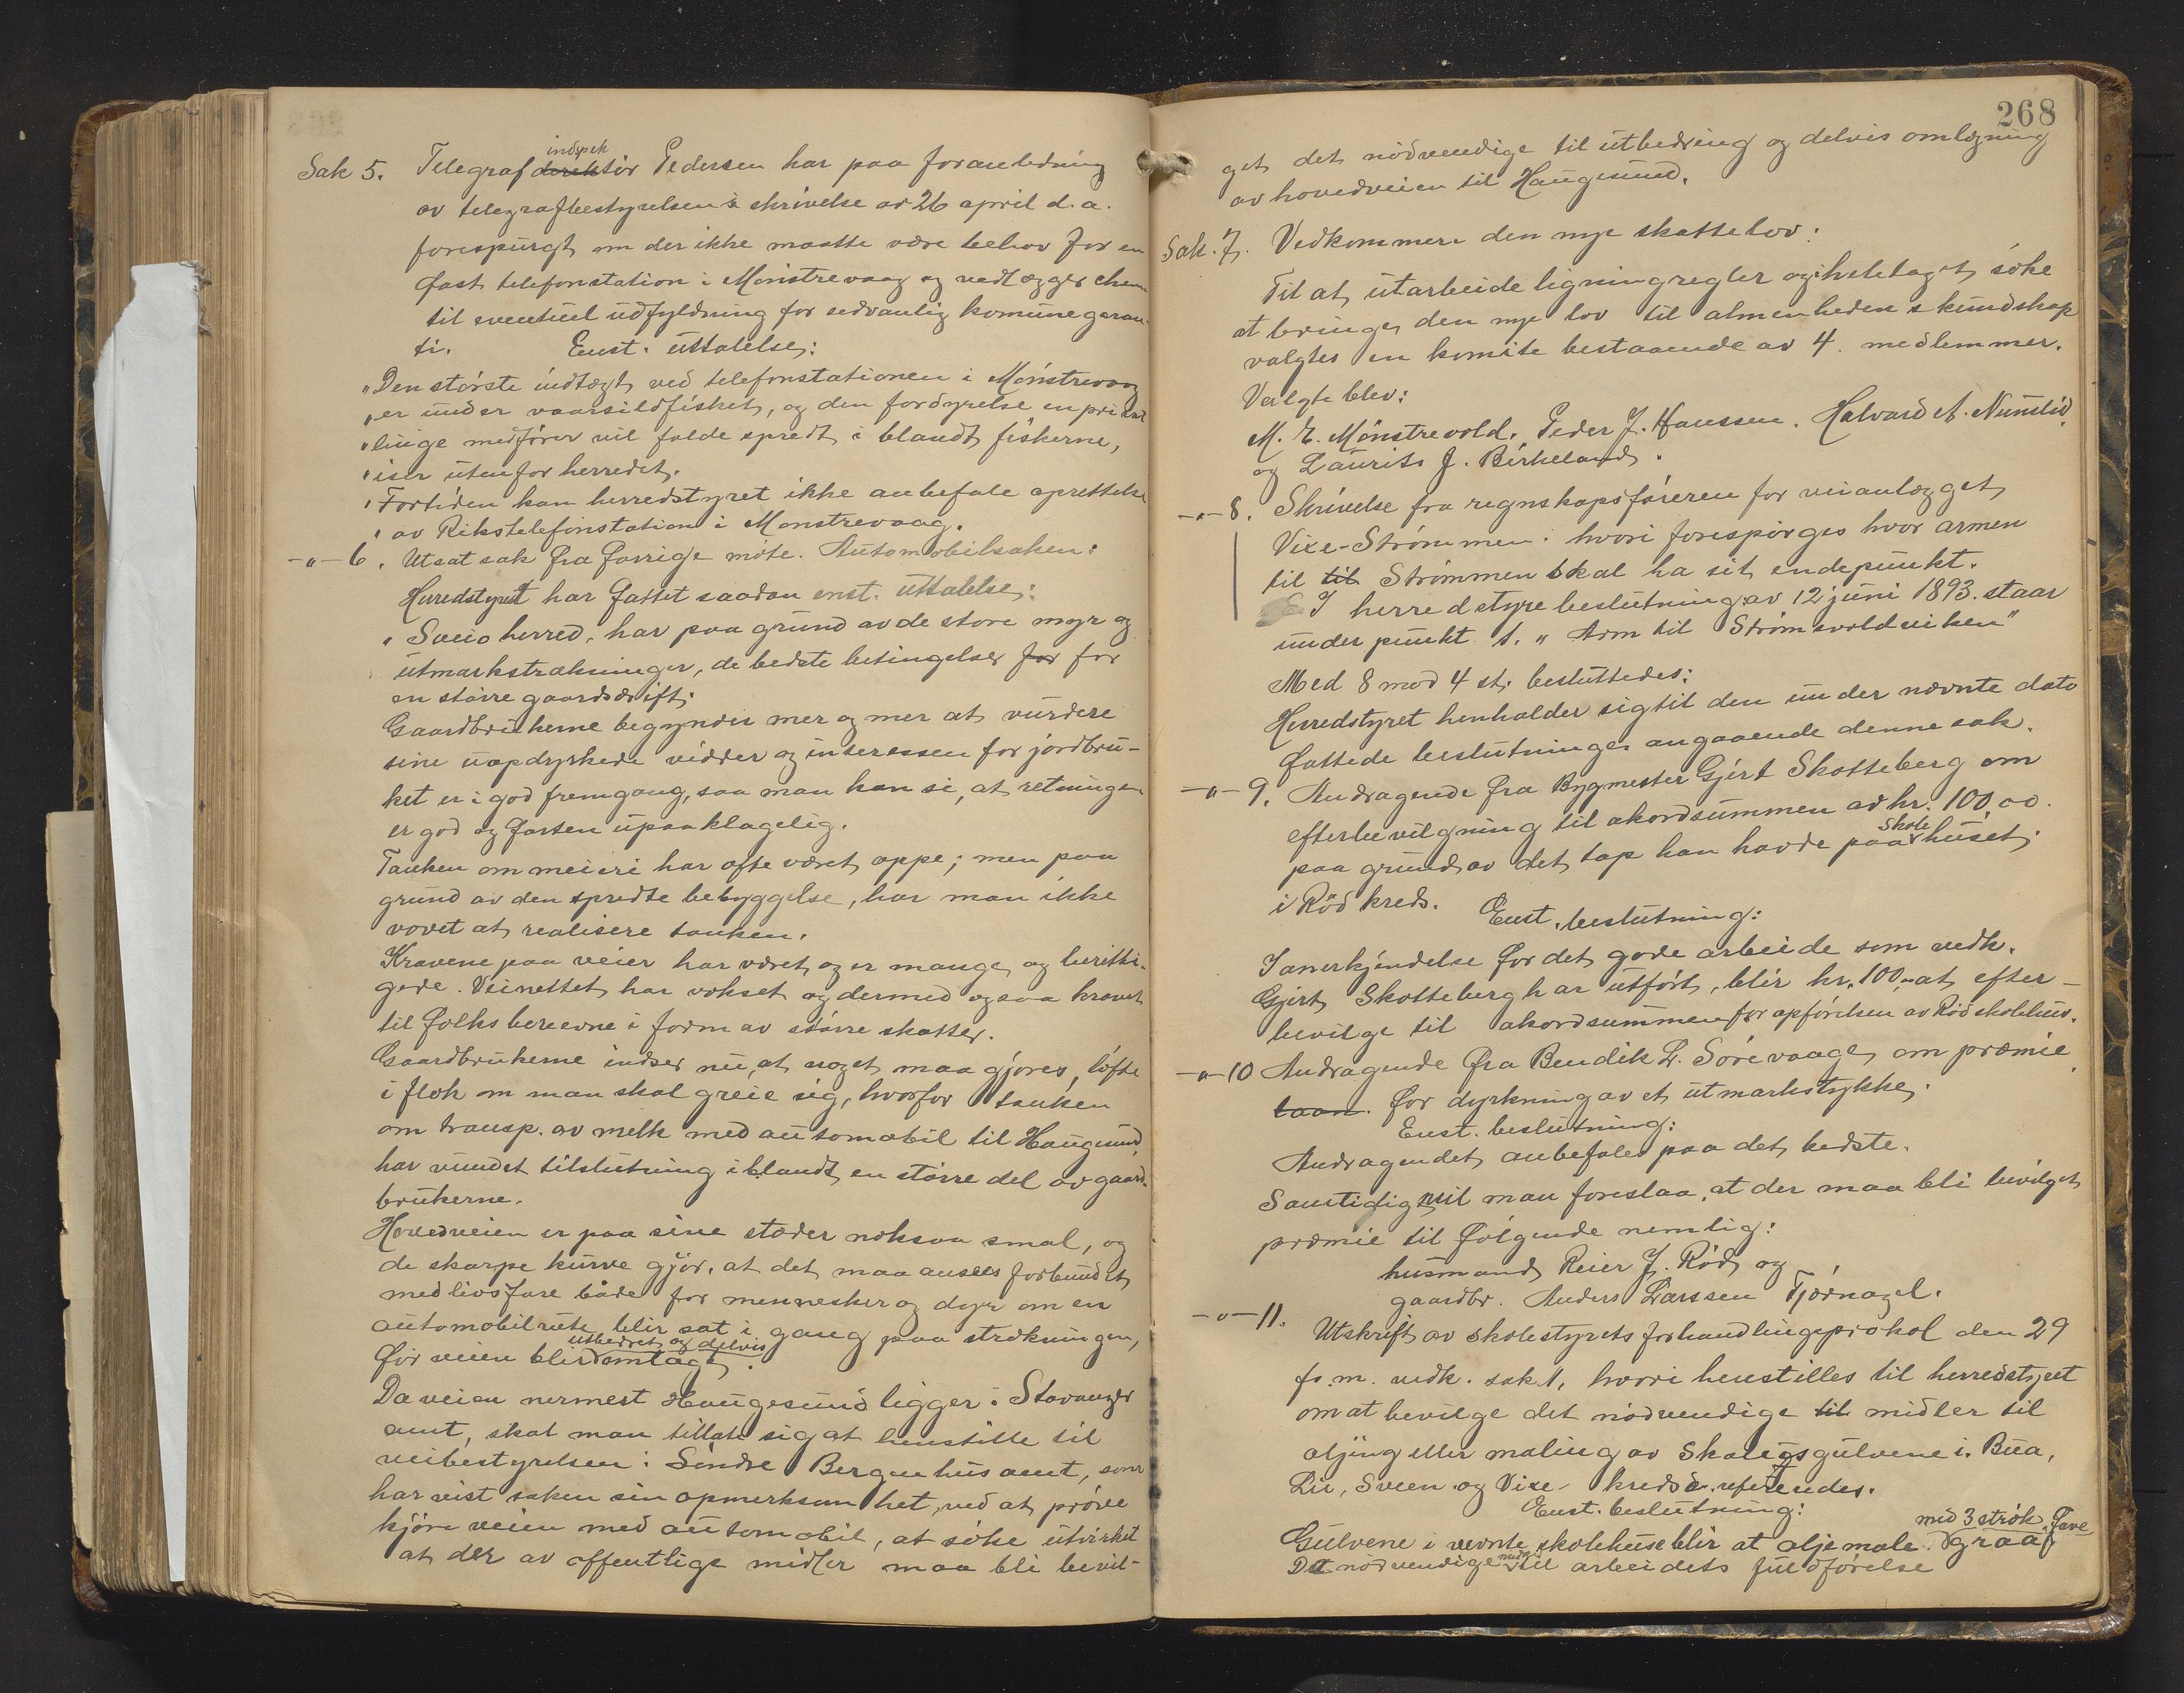 Sak 5. Telegraf direktör indspek Pedersen har paa foranledning
av telegrafbestyrelsens skrivelse av 26 april d.a.
forespurgt om der ikke maatte være behov for en
fast telefonstation i Mönstrevaag og vedlægger chema
til eventuel udfyldning for sedvanlig komunegaran-
ti. Enst. uttalelse:
"Den störste indtægt ved telefonstationen i Mönstrevaag
"er under vaarsildfisket, og den fordyrelse en privat
"linge medförer vil falde spredt i blandt fiskerne,
"især utenfor herredet.
"Fortiden kan herredstyret ikke anbefale oprettelse
"av Rikstelefonstation i Mönstrevaag.
-"- 6. Utsat sak fra forrige möte. Automobilsaken:
Herredstyret har fattet saadan enst. uttalelse:
"Sveio herred, har paa grund av de store myr og
utmarkstrækninger, de bedste betingelser for for
en större gaardsdrift.
Gaardbrukerne begynder mer og mer at vurdere
sine uopdyrkede vidder og interessen for jordbru-
ket er i god fremgang, saa man kan si, at retningen
er god og farten upaaklagelig.
Tanken om meieri har ofte været oppe; men paa
grund av den spredte bebyggelse, har man ikke
vovet at realisere tanken.
Kravene paa veier har været og er mange og beretti-
gede. Veinettet har vokset og dermed ogsaa kravet
til folks bereevne i form av större skatter.
Gaardbrukerne indser nu, at noget maa gjöres, löfte
i flok om man skal greie sig, hvorfor tanken
om transp. av melk med automobil til Haugesund,
har vundet tilslutning iblandt en större del av gaard-
brukerne.
Hovedveien er paa sine stæder noksaa smal, og
de skarpe kurve gjör, at det maa ansees forbundet
med livsfare både for mennesker og dyr om en
automobilrute blir sat i gang paa strækningen,
för veien blir utbedret og delvis omlagt.
Da veien nermest Haugesund ligger i Stavanger
amt, skal man tillate sig at henstille til
veibestyrelsen i Söndre Bergenhus amt, som
har vist saken sin opmerksomhet, ved at pröve
kjöre veien med automobil, at söke utvirket
at der av offentlige midler maa bli bevil-
268
get det nödvendige til utbedring og delvis omlægning
av hovedveien til Haugesund.
Sak. 7. Vedkommere den nye skattelov:
Til at utarbeide ligningregler og i heletaget söke
at bringe den nye lov til almenhedens kundskap
valgtes en komite bestaaende av 4 medlemmer.
Valgte blev:
M. E. Mönstrevold, Peder J. Hanssen, Halvard A. Numslid,
og Laurits J. Birkeland.
-"- 8. Skrivelse fra regnskapsföreren for veianlægget
Vixe-Strömmen: hvori forespörges hvor armen
til til Strömmen skal ha sit endepunkt.
I herredstyrebeslutning av 12 juni 1893. staar
under punkt 1. "Arm til Strömsvoldviken"
Med 8 mod 4 st. besluttedes:
Herredstyret henholder sig til den under nævnte dato
fattede beslutninger angaaende denne sak.
-"- 9. Andragende fra Bygmester Gjert Skotteberg om
efterbevilgning til akordsummen av kr. 100,00.
paa grund av det tap han havde paa skolehuset
i Röd kreds. Enst. beslutning:
I anerkjendelse for det gode arbeide som vedk.
Gjert Skotteberg har utfört, blir kr. 100,- at efter-
bevilge til akordsummen for opförelsen av Röd skolehus.
-"- 10 Andragende fra Bendik L. Sörevaage om præmie
laan. for dyrkning av et utmarkstykke.
Enst. beslutning:
Andragendet anbefales paa det bedste.
Samtidig vil man foreslaa, at der maa bli bevilget
præmie til fölgende nemlig:
husmand Reier J. Röd og
gaardbr. Anders Larssen Tjernagel.
-"- 11. Utskrift av skolestyrets forhandlingsprokol den 29
f.m. vedk. sak 1, hvori henstilles til herredstyret
om at bevilge det nödvendige til midler til
oljing eller maling av skolegulvene i Bua,
Lie, Sveen og Vixe- kredse refereredes.
Enst. beslutning:
Gulvene i nevnte skolehuse blir at oljemale med 3 strök graa farve
Det nödvendige midler til arbeidets fuldförelse